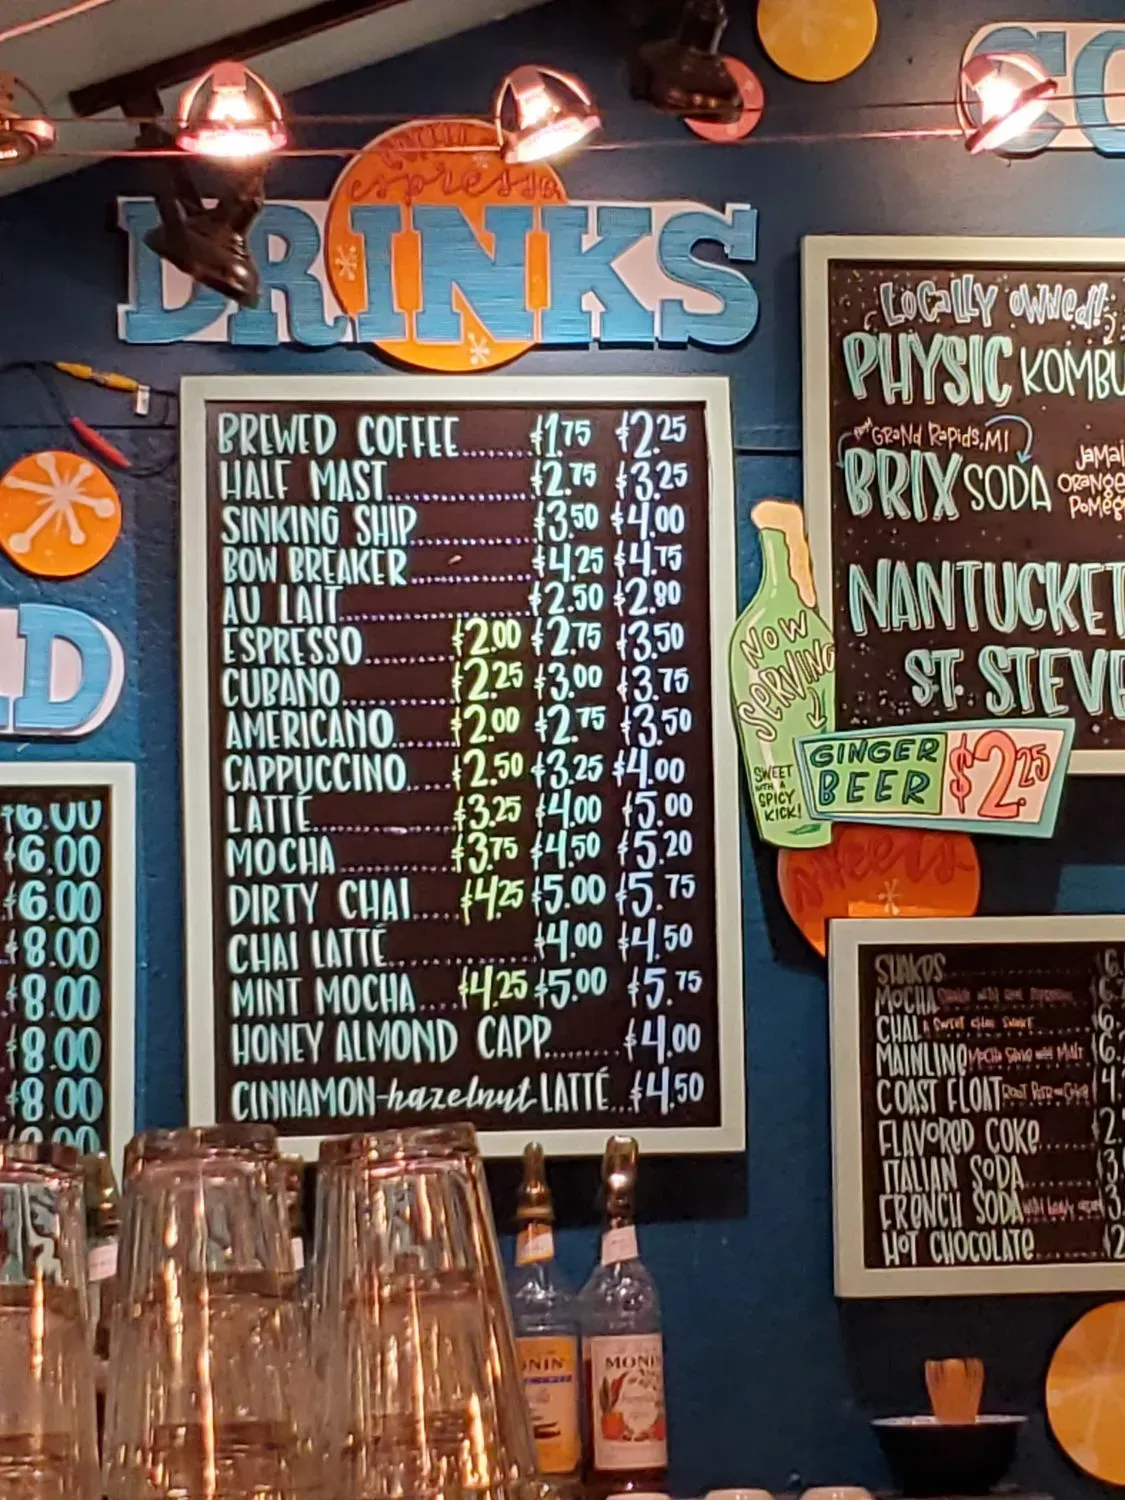 espresso
DRINKS
BREWED COFFEE $1.75 $2.25
HALF MAST $2.75 $3.25
SINKING SHIP $3.50 $4.00
BOW BREAKER $4.25 $4.75
AU LAIT $2.50 $2.80
ESPRESSO $2.00 $2.75 $3.50
CUBANO $2.25 $3.00 $3.75
AMERICANO $2.00 $2.75 $3.50
CAPPUCCINO $2.50 $3.25 $4.00
LATTÉ $3.25 $4.00 $5.00
MOCHA $3.75 $4.50 $5.20
DIRTY CHAI $4.25 $5.00 $5.75
CHAI LATTÉ $4.00 $4.50
MINT MOCHA $4.25 $5.00 $5.75
HONEY ALMOND CAPP $4.00
CINNAMON-hazelnut LATTÉ $4.50
$6.00
$6.00
$6.00
$8.00
$8.00
$8.00
$8.00
LOCALLY OWNED!
PHYSIC KOMBU
FROM GRAND RAPIDS, MI
BRIX SODA
JAMAI
ORANGE
POMEG
NANTUCKET
ST. STEVE
NOW
SERVING
SWEET
WITH A
SPICY
KICK!
GINGER
BEER
$2.25
sweets
SHAKES
MOCHA
CHAI A SWEET CHAI SHAKE
MAINLINE MOCHA SHAKE WITH MALT
COAST FLOAT ROOT BEER OR COKE
FLAVORED COKE
ITALIAN SODA
FRENCH SODA
HOT CHOCOLATE
MONIN